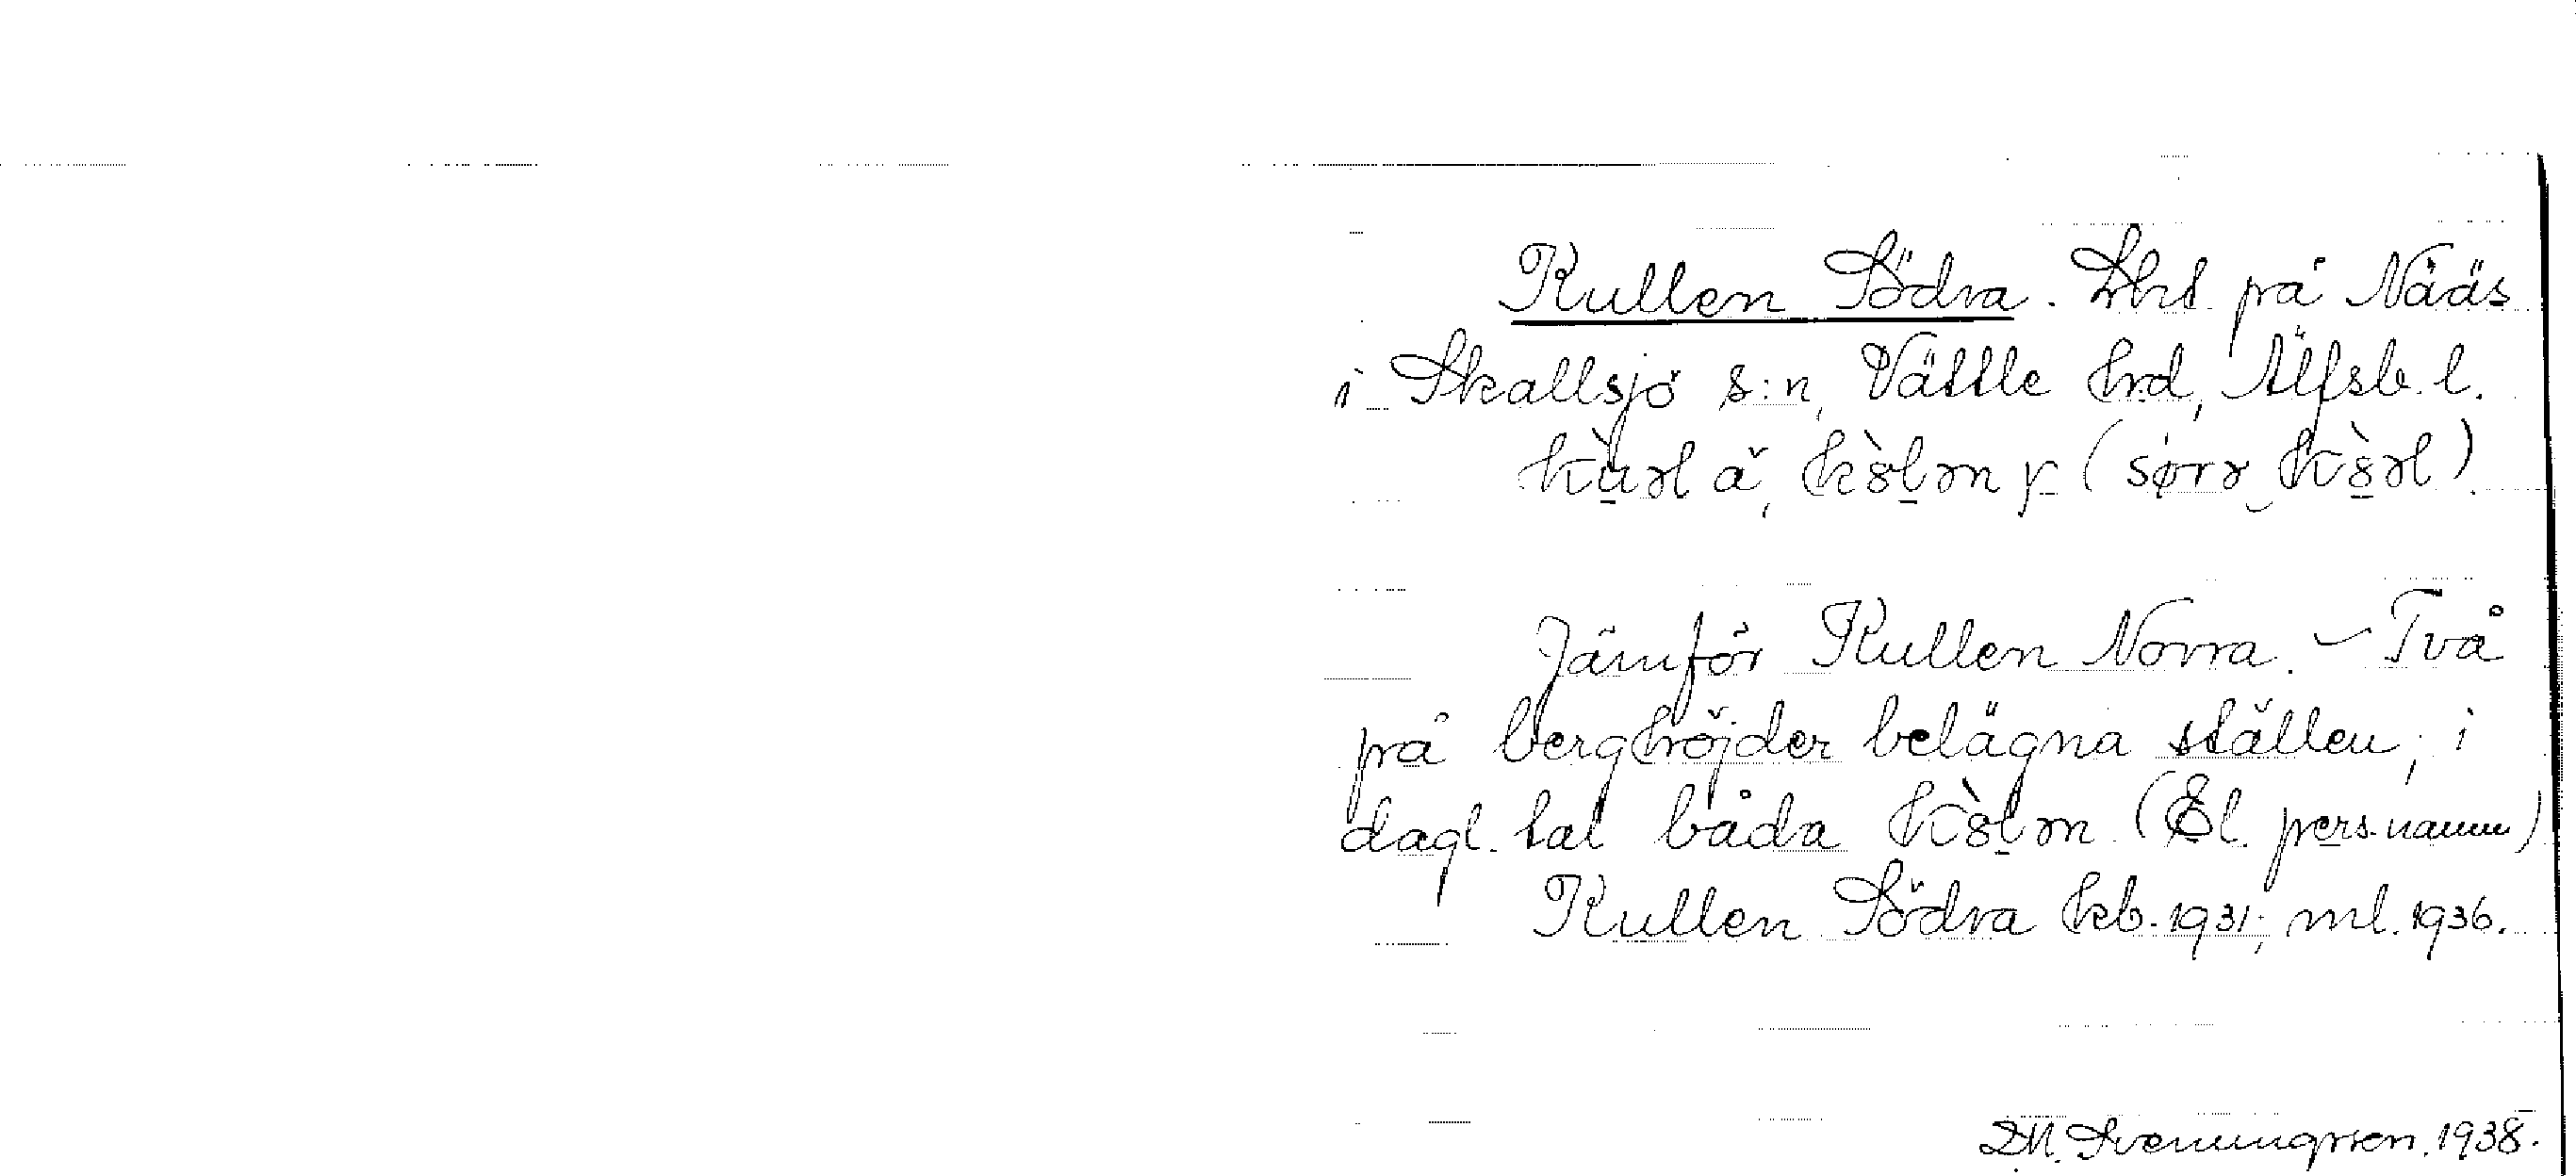 Kullen Södra. Lht på Nääs
i Skallsjö s:n, Vättle hrd, Älfsb. l.
Jämför Kullen Norra. – Två
på berghöjder belägna ställen, i
dagl. tal båda (El. persnamn)
Kullen Södra kb. 1931; ml. 1936.
D.M. Svenungsson. 1938.